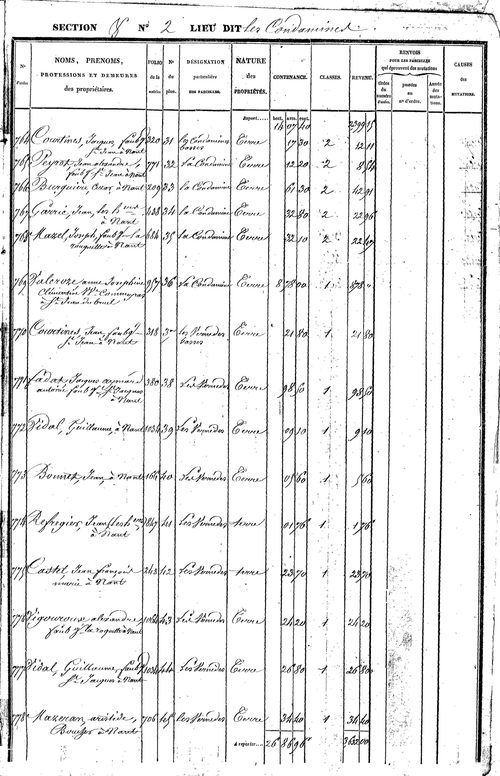 SECTION Y N° 2 LIEU DIT les Condamines
N° d'ordre
NOMS, PRENOMS,
PROFESSIONS ET DEMEURES
des propriétaires.
FOLIO
de la
matrice
N°
du
plan.
DÉSIGNATION
particulière
DES PARCELLES.
NATURE
des
PROPRIÉTÉS.
CONTENANCE.
CLASSES.
REVENU.
RENVOIS
POUR LES PARCELLES
qui éprouvent des mutations
tirées
du
numéro
d'ordre.
portées
au
n° d'ordre.
Année
des
muta-
tions.
CAUSES
des
MUTATIONS.
hect. ares. cent.
Report... 14 07 40 2399 15
764 Courtines, Jacques, faubg 320 31 les Condamines Terre 17 30 2 12 11
St Jean à Nant basses
765 Peyrot, Jean alexandre, 771 32 la Condamine Terre 12 20 2 8 54
faubg St Jean à Nant
766 Burguière, Cesar, à Nant 209 33 la Condamine Terre 61 30 2 42 91
767 Garric, Jean, les h 438 34 la Condamine Terre 32 80 2 22 96
à Nant
768 Mazel, Joseph, faubg la 684 35 la Condamine Terre 32 10 2 22 47
roquette à Nant
769 Valcroze anne Josephine 957 36 la Condamine Terre 8 78 00 1 878 "
Clémentine
à St Jean du bruel
770 Courtines, Jean, faubg 318 37 les Vernedes Terre 21 80 1 21 80
St Jean à Nant basses
771 Jacques aymard 380 38 Les Vernedes Terre 98 50 1 98 50
antoine faubg St Jacques
à Nant
772 Vidal, Guillaume, à Nant 1034 39 Les Vernedes Terre 09 10 1 9 10
773 Bonnet, Jean, à Nant 164 40 Les Vernedes Terre 05 60 1 5 60
774 Refregier, Jean, les h 847 41 Les Vernedes terre 01 76 1 1 76
à Nant
775 Castel Jean françois 243 42 Les Vernedes terre 23 70 1 23 70
marie à Nant
776 Vigouroux alexandre, 1064 43 Les Vernedes Terre 24 20 1 24 20
faubg la roquette à Nant
777 Vidal, Guillaume, faubg 1034 44 Les Vernedes Terre 26 80 1 26 80
St Jacques à Nant
778 Mazeran, aristide, 706 45 les Vernedes Terre 34 40 1 34 40
à Nant
A reporter.... 26 86 96